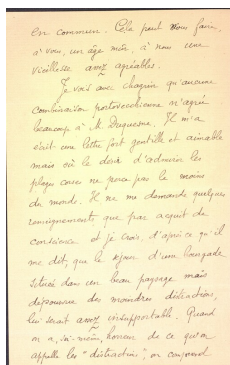 en commun. Cela peut vous faire,
à vous, un âge mûr, à nous une
vieillesse assez agréables.
Je vois avec chagrin qu'aucune
combinaison portosecobienne n'agrée
beaucoup à M. Duquesne. Il m'a
écrit une lettre fort gentille et aimable
mais où le désir d'admirer les
plages corses ne perce pas le moins
du monde. Il ne me demande quelques
renseignements que par acquit de
conscience et je crois, d'après ce qu'il
me dit, que le séjour d'une bourgade
située dans un beau paysage mais
dépourvue des moindres distractions,
lui serait assez insupportable. Quand
on a, soi-même, horreur de ce qu'on
appelle les "distractions", on comprend